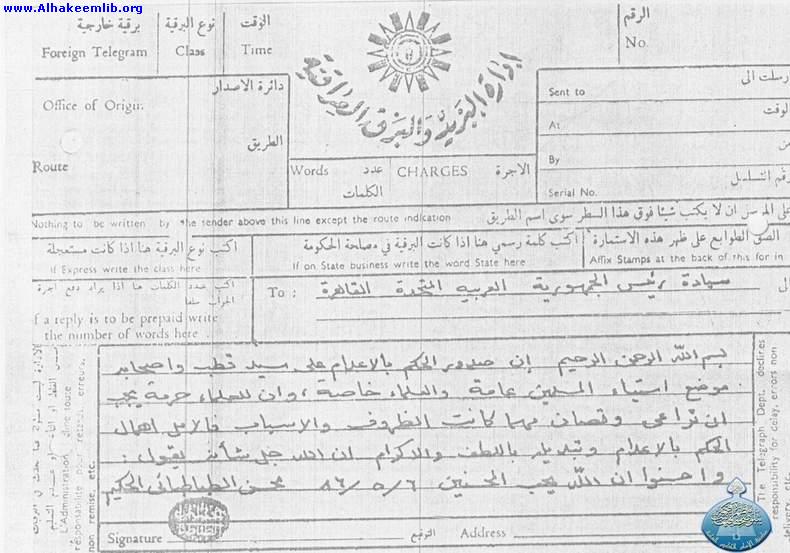 www.Alhakeemlib.org
برقية خارجية
نوع البرقية
الوقت
الرقم
Foreign Telegram
Class
Time
No.
ادارة البريد والبرق العراقية
دائرة الاصدار
Office of Origin.
ارسلت الى
Sent to
الوقت
At
الطريق
Route
من
By
Words
عدد
CHARGES
الاجرة
الكلمات
رقم التسلسل
Serial No.
Nothing to be written by the sender above this line except the route indication
على المرسل ان لا يكتب شيئا فوق هذا السطر سوى اسم الطريق
اكتب نوع البرقية هنا اذا كانت مستعجلة
اكتب كلمة رسمي هنا اذا كانت البرقية في مصلحة الحكومة
الصق الطوابع على ظهر هذه الاستمارة
If Express write the class here
If on State business write the word State here
Affix Stamps at the back of this for in
اكتب عدد الكلمات هنا اذا يراد دفع اجرة
الجواب سلفا
If a reply is to be prepaid write
the number of words here
To :
سيادة رئيس الجمهورية العربية المتحدة القاهرة
الى
بسم الله الرحمن الرحيم إن صدور الحكم بالاعدام على سيد قطب واصحابه
موضع استياء المسلمين عامة والعلماء خاصة ، وان للعلماء حرمة يجب
ان تراعى وتصان مهما كانت الظروف والاسباب فالأمل اهمال
الحكم بالاعدام وتبديله باللطف والاكرام ان الله جل شأنه يقول :
واحسنوا ان الله يحب المحسنين ٨٦/٥/٦ محسن الطباطبائي الحكيم
Signature
التوقيع
Address
L'Administration
responsabilité pour retards, erreurs,
non remise, etc.
The Telegraph Dept. declines
responsibility for delay, errors non
delivery, etc.